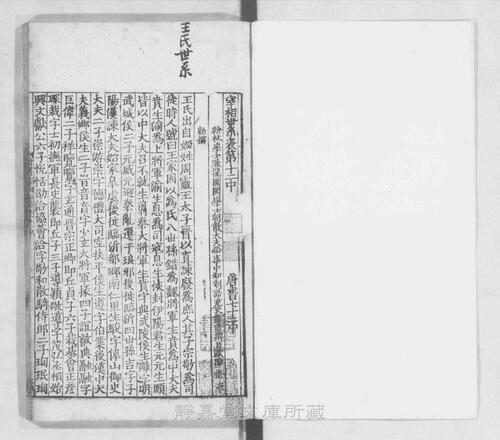 王氏世系
宰相世系表第十二中 唐書七十二中
翰林學士兼龍圖閣學士朝散大夫給事中知制誥充史館脩撰臣歐陽脩奉
勑撰
王氏出自姬姓周靈王太子晉以直諫廢爲庶人其子宗敬爲司
徒時人號曰王家因以爲氏八世孫錯爲魏將軍生賁爲中大夫
賁生渝爲上將軍渝生息爲司寇息生恢封伊陽君生元元生頤
皆以中大夫召不就生翦秦大將軍生賁字典武陵侯生離字明
武城侯二子元威元避秦亂遷于琅邪後徙臨沂四世孫吉字子
陽漢諫大夫始家皐虞後徙臨沂都鄉南仁里生駿字偉山御史
大夫二子崇游崇字德禮大司空扶平侯生遵字伯業後漢中大
夫義鄉侯生二子音音字少玄大將軍掾四子誼叡典融融字
巨偉二子祥覽覽字玄通晉宗正卿即丘貞子六子裁基會正彥
琛裁字士初撫軍長史襲即丘子三子導潁敞導字茂弘丞相始
興文獻公六子悅恬劭洽協薈洽字敬和散騎侍郎二子珣珉珣
靜嘉堂文庫所藏